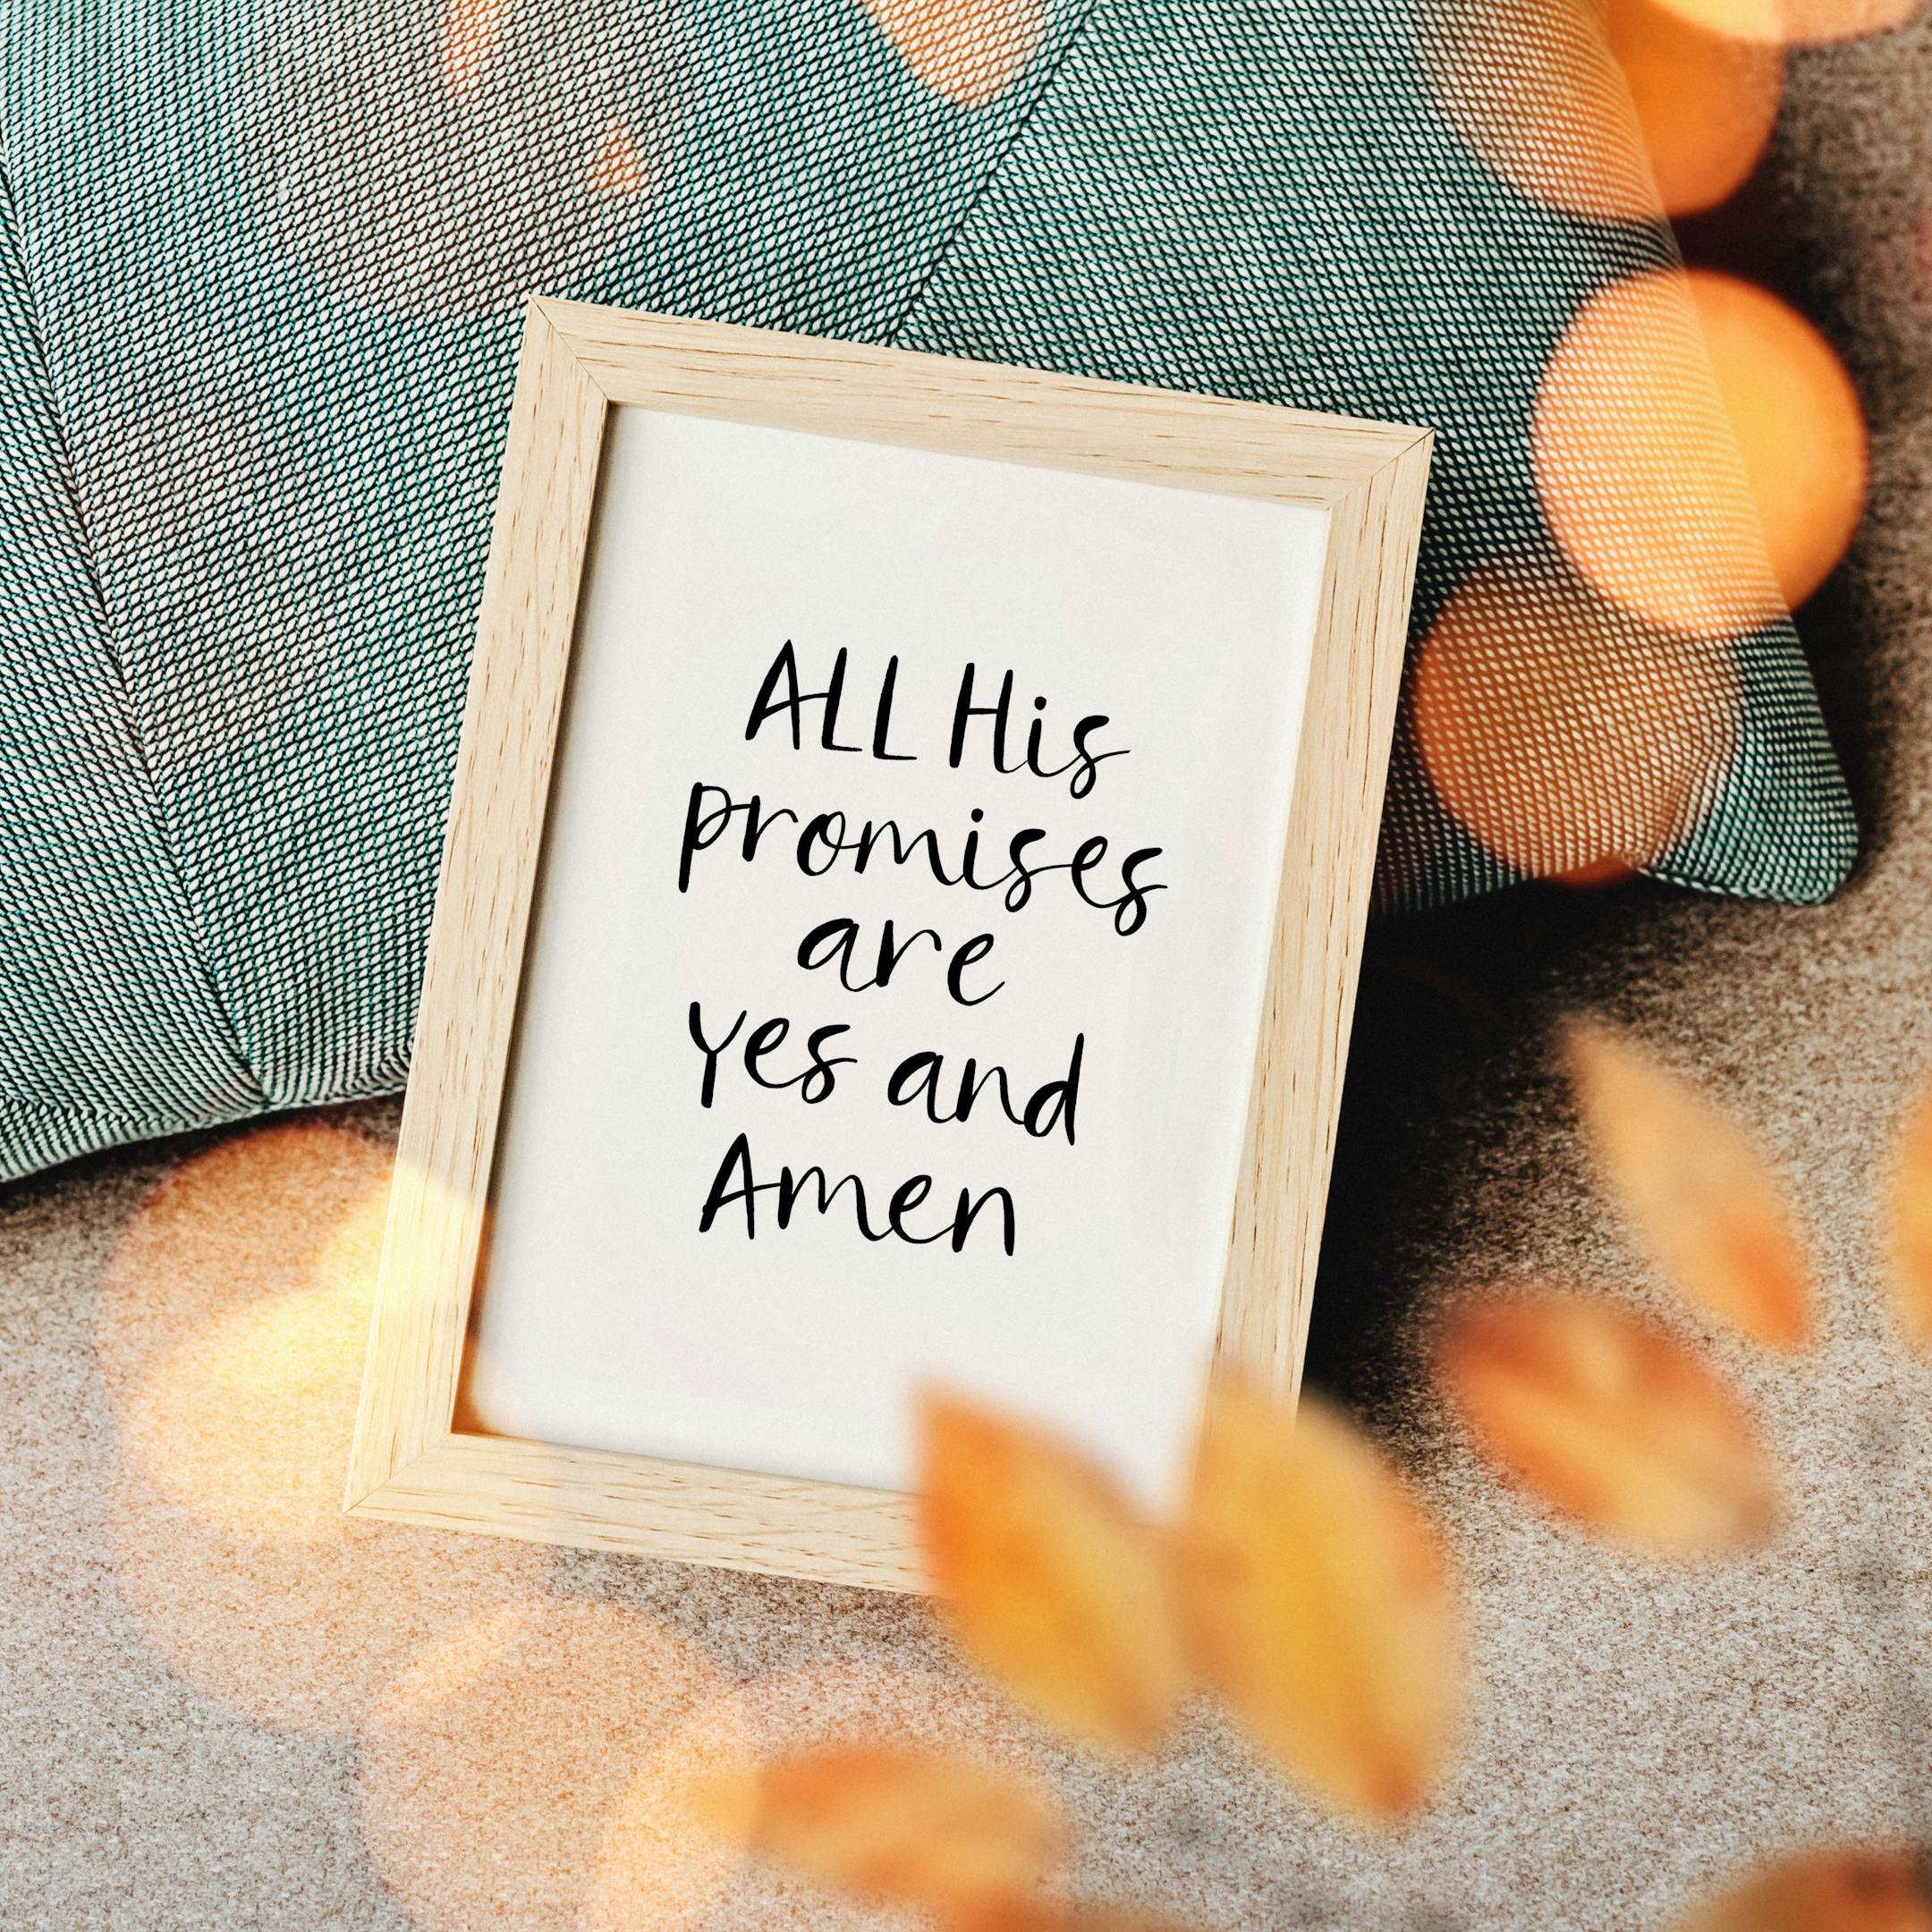 ALL His
promises
are
Yes and
Amen